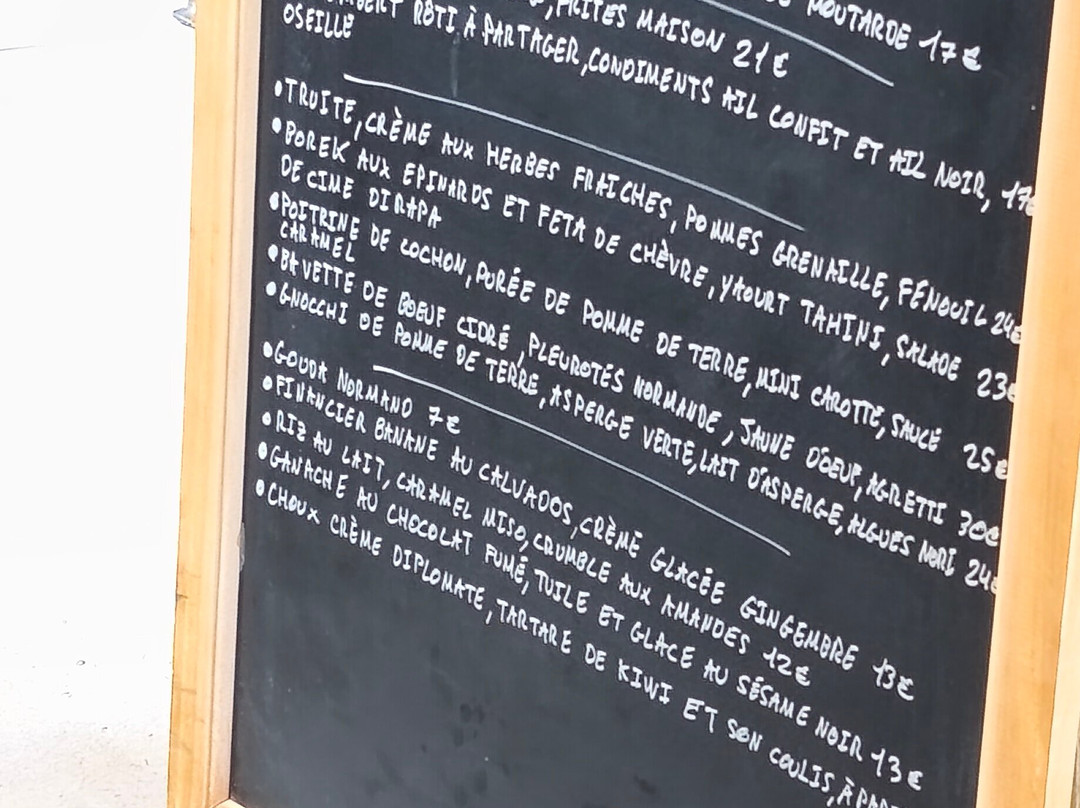 MOUTARDE 17€
, FRITES MAISON 21€
RÔTI À PARTAGER, CONDIMENTS AIL CONFIT ET AIL NOIR, 17€
OSEILLE
•TRUITE, CRÈME AUX HERBES FRAICHES, POMMES GRENAILLE, FENOUIL 24€
•BOREK AUX EPINARDS ET FETA DE CHÈVRE, YAOURT TAHINI, SALADE 23€
DE CIME DI RAPA
•POITRINE DE COCHON, PURÉE DE POMME DE TERRE, MINI CAROTTE, SAUCE 25€
CARAMEL
•BAVETTE DE BOEUF CIDRÉ, PLEUROTES NORMANDE, JAUNE D'OEUF, AGRETTI 30€
•GNOCCHI DE POMME DE TERRE, ASPERGE VERTE, LAIT D'ASPERGE, ALGUES NORI 24€
•GOUDA NORMAND 7€
•FINANCIER BANANE AU CALVADOS, CRÈME GLACÉE GINGEMBRE 13€
•RIZ AU LAIT, CARAMEL MISO, CRUMBLE AUX AMANDES 12€
•GANACHE AU CHOCOLAT FUMÉ, TUILE ET GLACE AU SÉSAME NOIR 13€
•CHOUX CRÈME DIPLOMATE, TARTARE DE KIWI ET SON COULIS, À